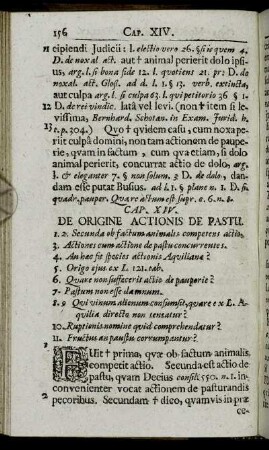 156 CAP. XIV.
11 cipiendi Judicii: l. electio vero 26. §. si is quem 4.
D. de noxal act. aut † animal perierit dolo ipsius,
arg. l. si bona fide 12. l. quotiens 21. pr: D. de
noxal. act. Gloss. ad d. l. 1. §. 13. verb. extincta,
aut culpa arg. l. si culpa 63. l. qui petitorio 36 §. 1.
12 D. de rei vindic. latâ vel levi. (non † item si levissima,
Bernhard. Schotan. in Exam. Jurid. h.
13 t. p. 304.) Quo † quidem casu, cum noxa pererit
culpâ domini, non tam actionem de pauperie,
quam in factum, cum qua etiam, si dolo
animal perierit, concurrat actio de dolo, arg.
l. & eleganter 7. §. non solum. 3 D. de dolo, dandam
esse putat Busius. ad l. 1. §. plane n. 1. D. si
quadr. pauper. Quære istum est supr. c. 6. n. 8.
CAP. XIV.
DE ORIGINE ACTIONIS DE PASTU.
1. 2. Secunda ob factum animalis competens actio.
3. Actiones cum actione de pastu concurrentes.
4. An hæc sit species actionis Aquilianæ?
5. Origo ejus ex L. 12. tab.
6. Quare non suffecerit actio de pauperie?
7. Pastum non esse damnum.
8. 9 Qui vinum alienum consumsit, quare ex L. Aquilia
directo non tenetur?
10. Ruptionis nomine quid comprehendatur?
11. Fructus an pastu corrumpantur?
FUit † prima, quæ ob factum animalis,
competit actio. Secunda est actio de
pastu, quam Decius consil. 550. n. 1. inconvenienter
vocat actionem de pasturandis
2 pecoribus. Secundam † dico, quamvis in præce-